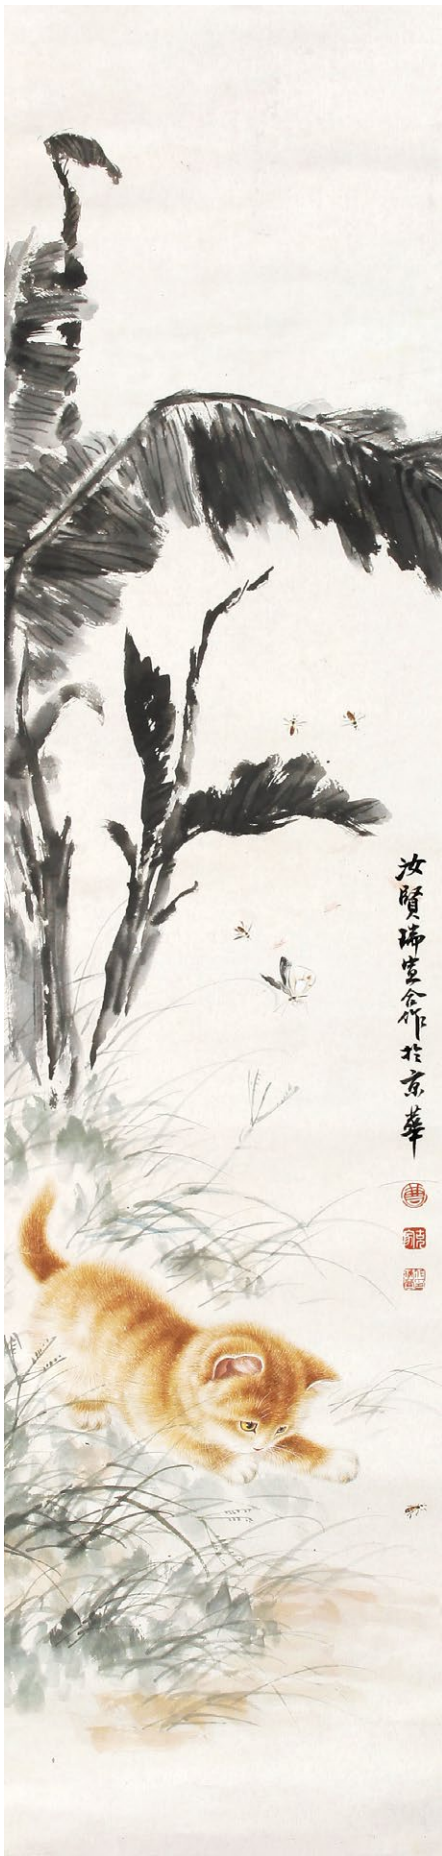 汝賢瑞宣合作於京華